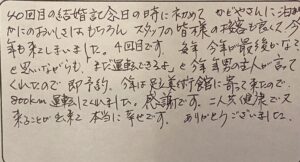 40回目の結婚記念日の時に初めて かどやさんに泊り
かにのおいしさはもちろん スタッフの皆様の接客が良くて今
年も来てしまいました。4回目です。 毎年 今年が最後かな
と思いながらも、まだ運転できるよ と今年男の主人が言って
くれたので 即予約。今年は足立美術館に寄って来たので
800km運転してくれました。感謝です。二人共健康でここに
来ることが出来て 本当に幸せです。ありがとうございました。